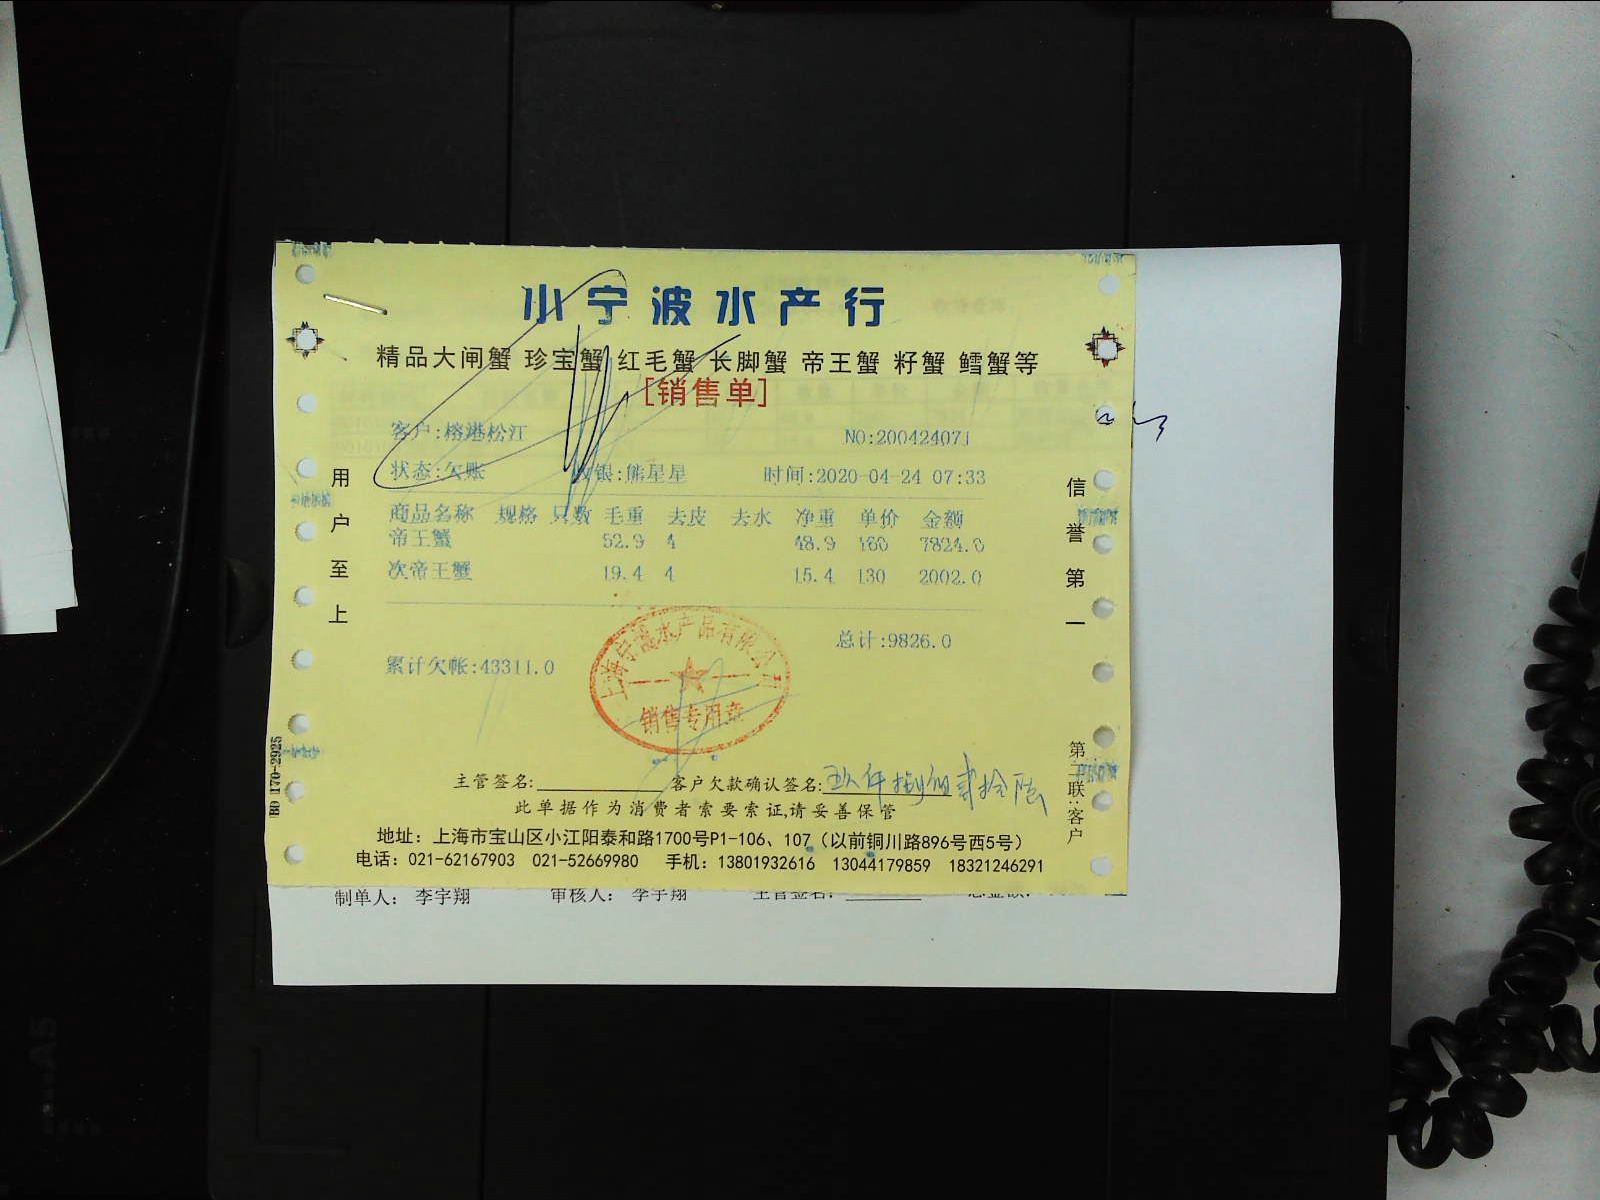 小宁波水产行
精品大闸蟹 珍宝蟹 红毛蟹 长脚蟹 帝王蟹 籽蟹 鳕蟹等
[销售单]
客户:榕港松江 NO:200424071
状态:欠账 收银:熊星星 时间:2020-04-24 07:33
商品名称 规格 只数 毛重 去皮 去水 净重 单价 金额
帝王蟹 52.9 4 48.9 160 7824.0
次帝王蟹 19.4 4 15.4 130 2002.0
总计:9826.0
累计欠帐:43311.0
上海宁波水产品有限公司
销售专用章
主管签名: 客户欠款确认签名:玖仟捌佰贰拾陆
此单据作为消费者索要索证,请妥善保管
地址：上海市宝山区小江阳泰和路1700号P1-106、107（以前铜川路896号西5号）
电话：021-62167903 021-52669980 手机：13801932616 13044179859 18321246291
用户至上
信誉第一
第二联:客户
BD 170-2925
制单人： 李宇翔 审核人： 李宇翔 主管签名：
A5